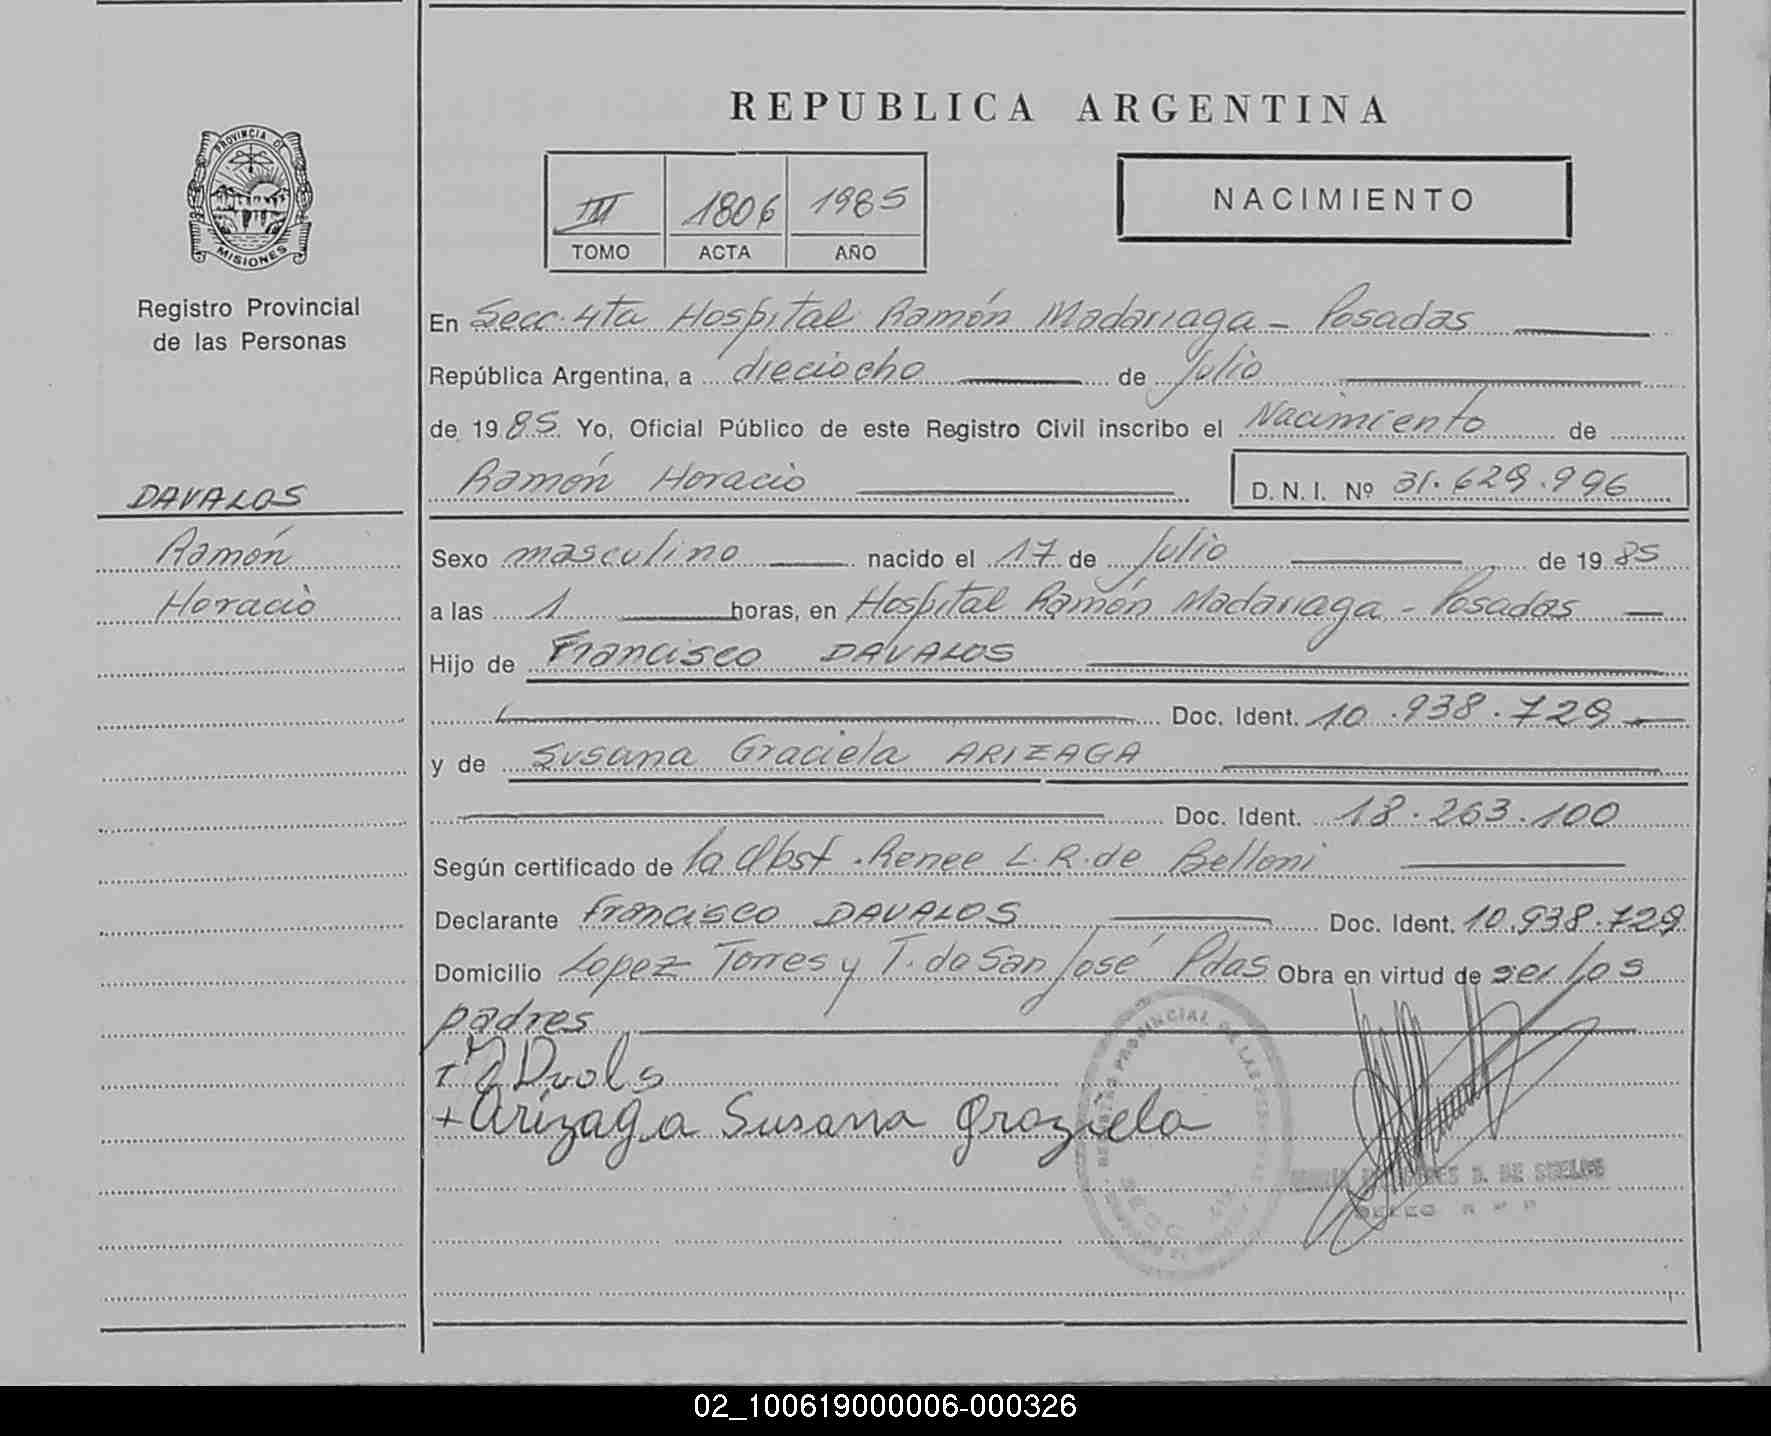 REPUBLICA ARGENTINA
PROVINCIA DE
MISIONES
Registro Provincial
de las Personas
III 1806 1985
TOMO ACTA AÑO
NACIMIENTO
En Secc. 4ta Hospital Ramón Madariaga - Posadas
República Argentina, a dieciocho de Julio
de 1985 Yo, Oficial Público de este Registro Civil inscribo el Nacimiento de
Ramón Horacio D. N. I. Nº 31.629.996
DAVALOS
Ramón
Horacio
Sexo masculino nacido el 17 de Julio de 1985
a las 1 horas, en Hospital Ramón Madariaga - Posadas
Hijo de Francisco DAVALOS
Doc. Ident. 10.938.729
y de Susana Graciela ARIZAGA
Doc. Ident. 18.263.100
Según certificado de la Obst. Renee L. R. de Belloni
Declarante Francisco DAVALOS Doc. Ident. 10.938.729
Domicilio Lopez Torres y T. de San José Pdas Obra en virtud de ser los
padres
+ Arizaga Susana Graziela
REGISTRO PROVINCIAL DE LAS PERSONAS
SECC.
D. DE
02_100619000006-000326